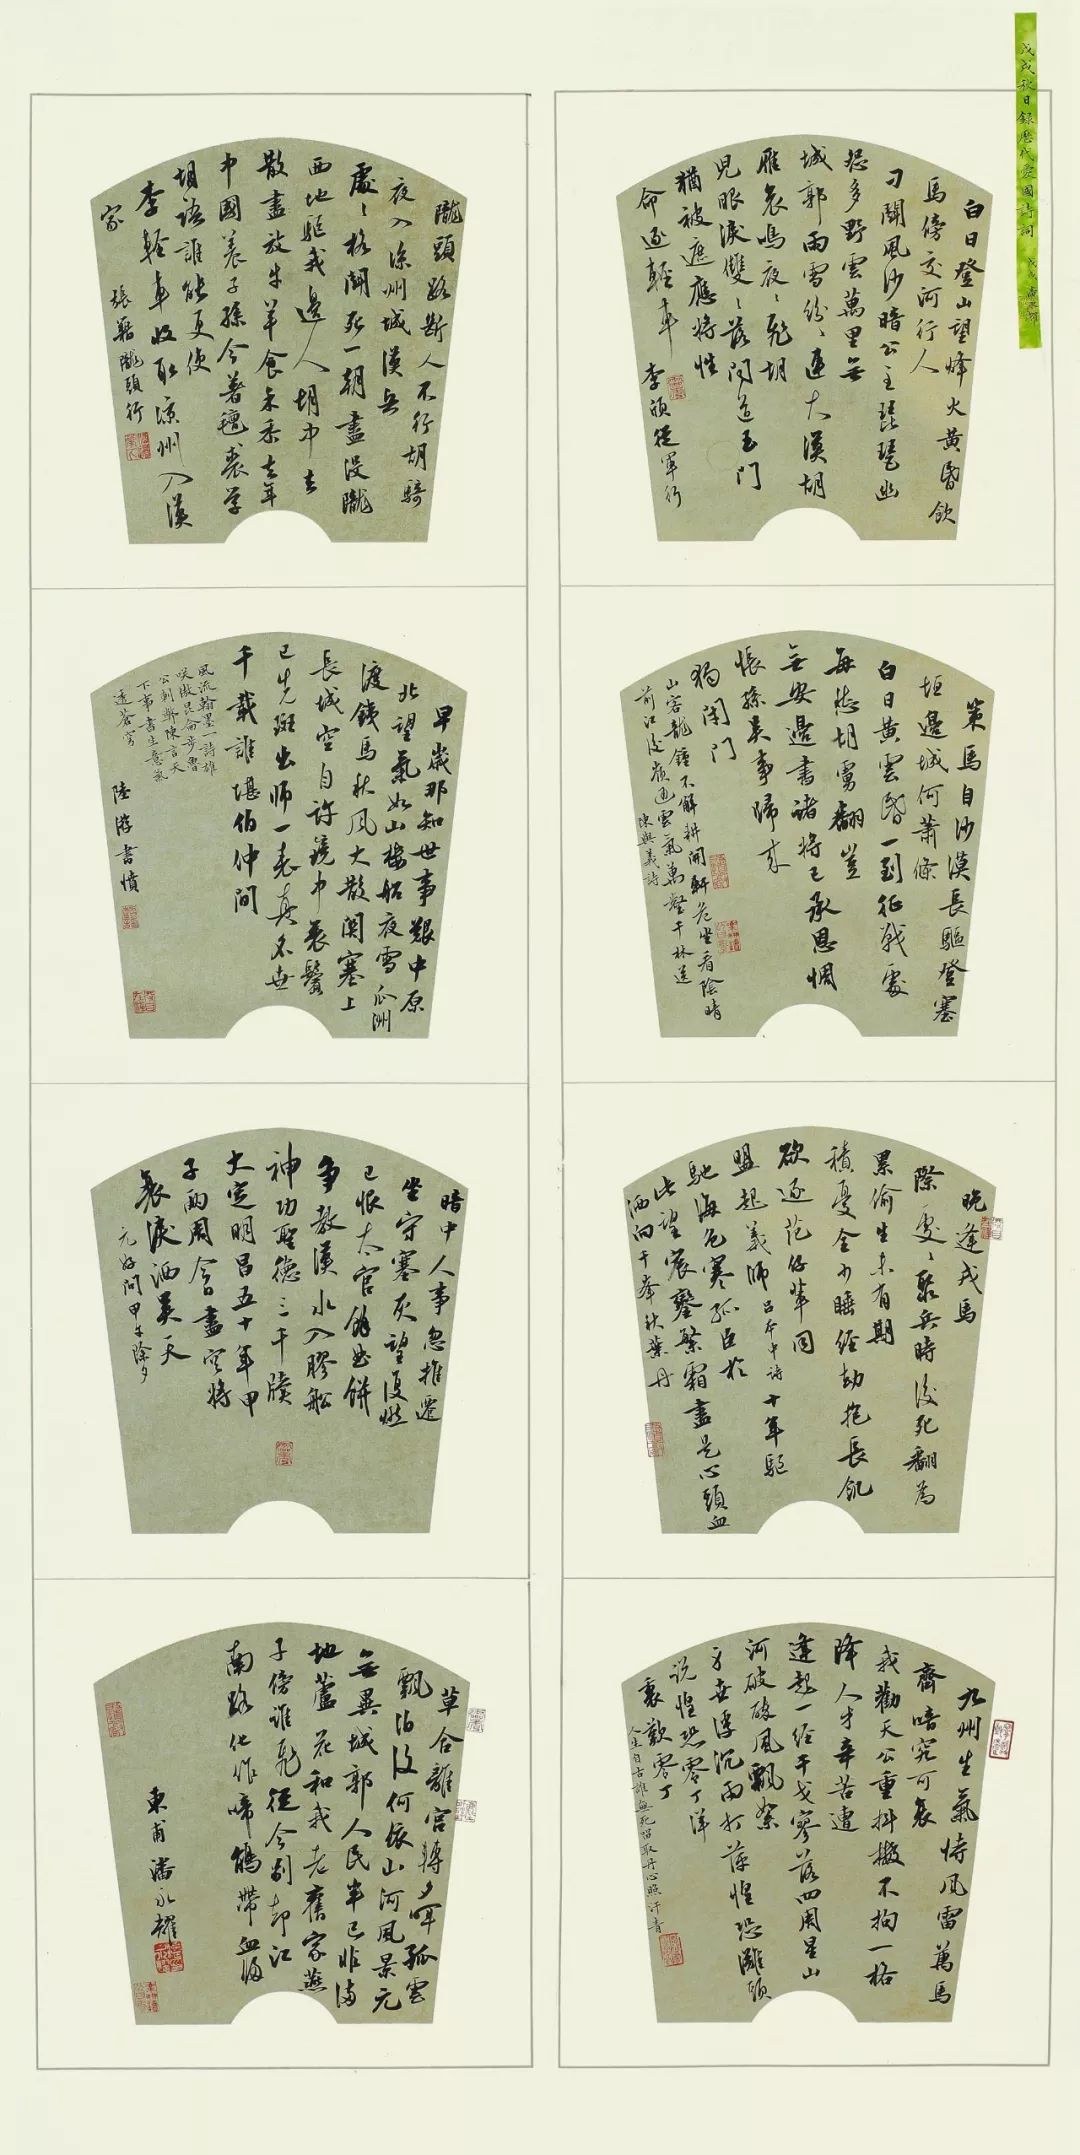 戊戌秋日錄歷代愛國詩詞
白日登山望烽火黄昏飲
馬傍交河行人
刁鬭風沙暗公主琵琶幽
怨多野雲萬里無
城郭雨雪紛〻連大漠胡
雁哀鳴夜〻飛胡
兒眼淚雙〻落聞道玉門
猶被遮應將性
命逐輕車 李頎從軍行
策馬自沙漠長驅登塞
垣邊城何蕭條
白日黄雲昏一到征戰處
每愁胡虜翻豈
無安邊書諸將已承恩惆
悵孫吳事歸來
獨閉門
山客龍鍾不解耕開軒危坐看陰晴
前江後嶺通雲氣萬壑千林送
陳與義詩
晚逢戎馬
際處〻聚兵時後死翻為
累偷生未有期
積憂全少睡經劫抱長飢
欲逐范仔輩同
盟起義師 呂本中詩 十年驅
馳海色寒孤臣於
此望宸鑾繁霜盡是心頭血
洒向千峯秋葉丹
九州生氣恃風雷萬馬
齊喑究可哀
我勸天公重抖擻不拘一格
降人才辛苦遭
逢起一經干戈寥落四周星山
河破碎風飄絮
身世浮沉雨打萍惶恐灘頭
説惶恐零丁洋
裏歎零丁
人生自古誰無死留取丹心照汗青
隴頭路斷人不行胡騎
夜入涼州城漢兵
處〻格鬭死一朝盡没隴
西地驅我邊人胡中去
散盡放牛羊食禾黍去年
中國養子孫今著氊裘學
胡語誰能更使
李輕車收取涼州入漢
家
張籍隴頭行
早歲那知世事艱中原
北望氣如山樓船夜雪瓜洲
渡鐵馬秋風大散関塞上
長城空自許鏡中衰鬢
已先斑出師一表真名世
千載誰堪伯仲間
風流翰墨一詩雄
笑傲昆侖步魯
公刺弊陳言天
下事書生意氣
透蒼穹
陸游書憤
暗中人事忽推遷
坐守寒灰望復燃
已恨太官餘麴餅
爭教漢水入膠船
神功聖德三千牘
大定明昌五十年甲
子兩周今日盡空將
衰淚洒吳天
元好問甲午除夕
草合離宮轉夕暉孤雲
飄泊復何依山河風景元
無異城郭人民半已非滿
地蘆花和我老舊家燕
子傍誰飛從今別却江
南路化作啼鵑帶血歸
東甫潘永耀